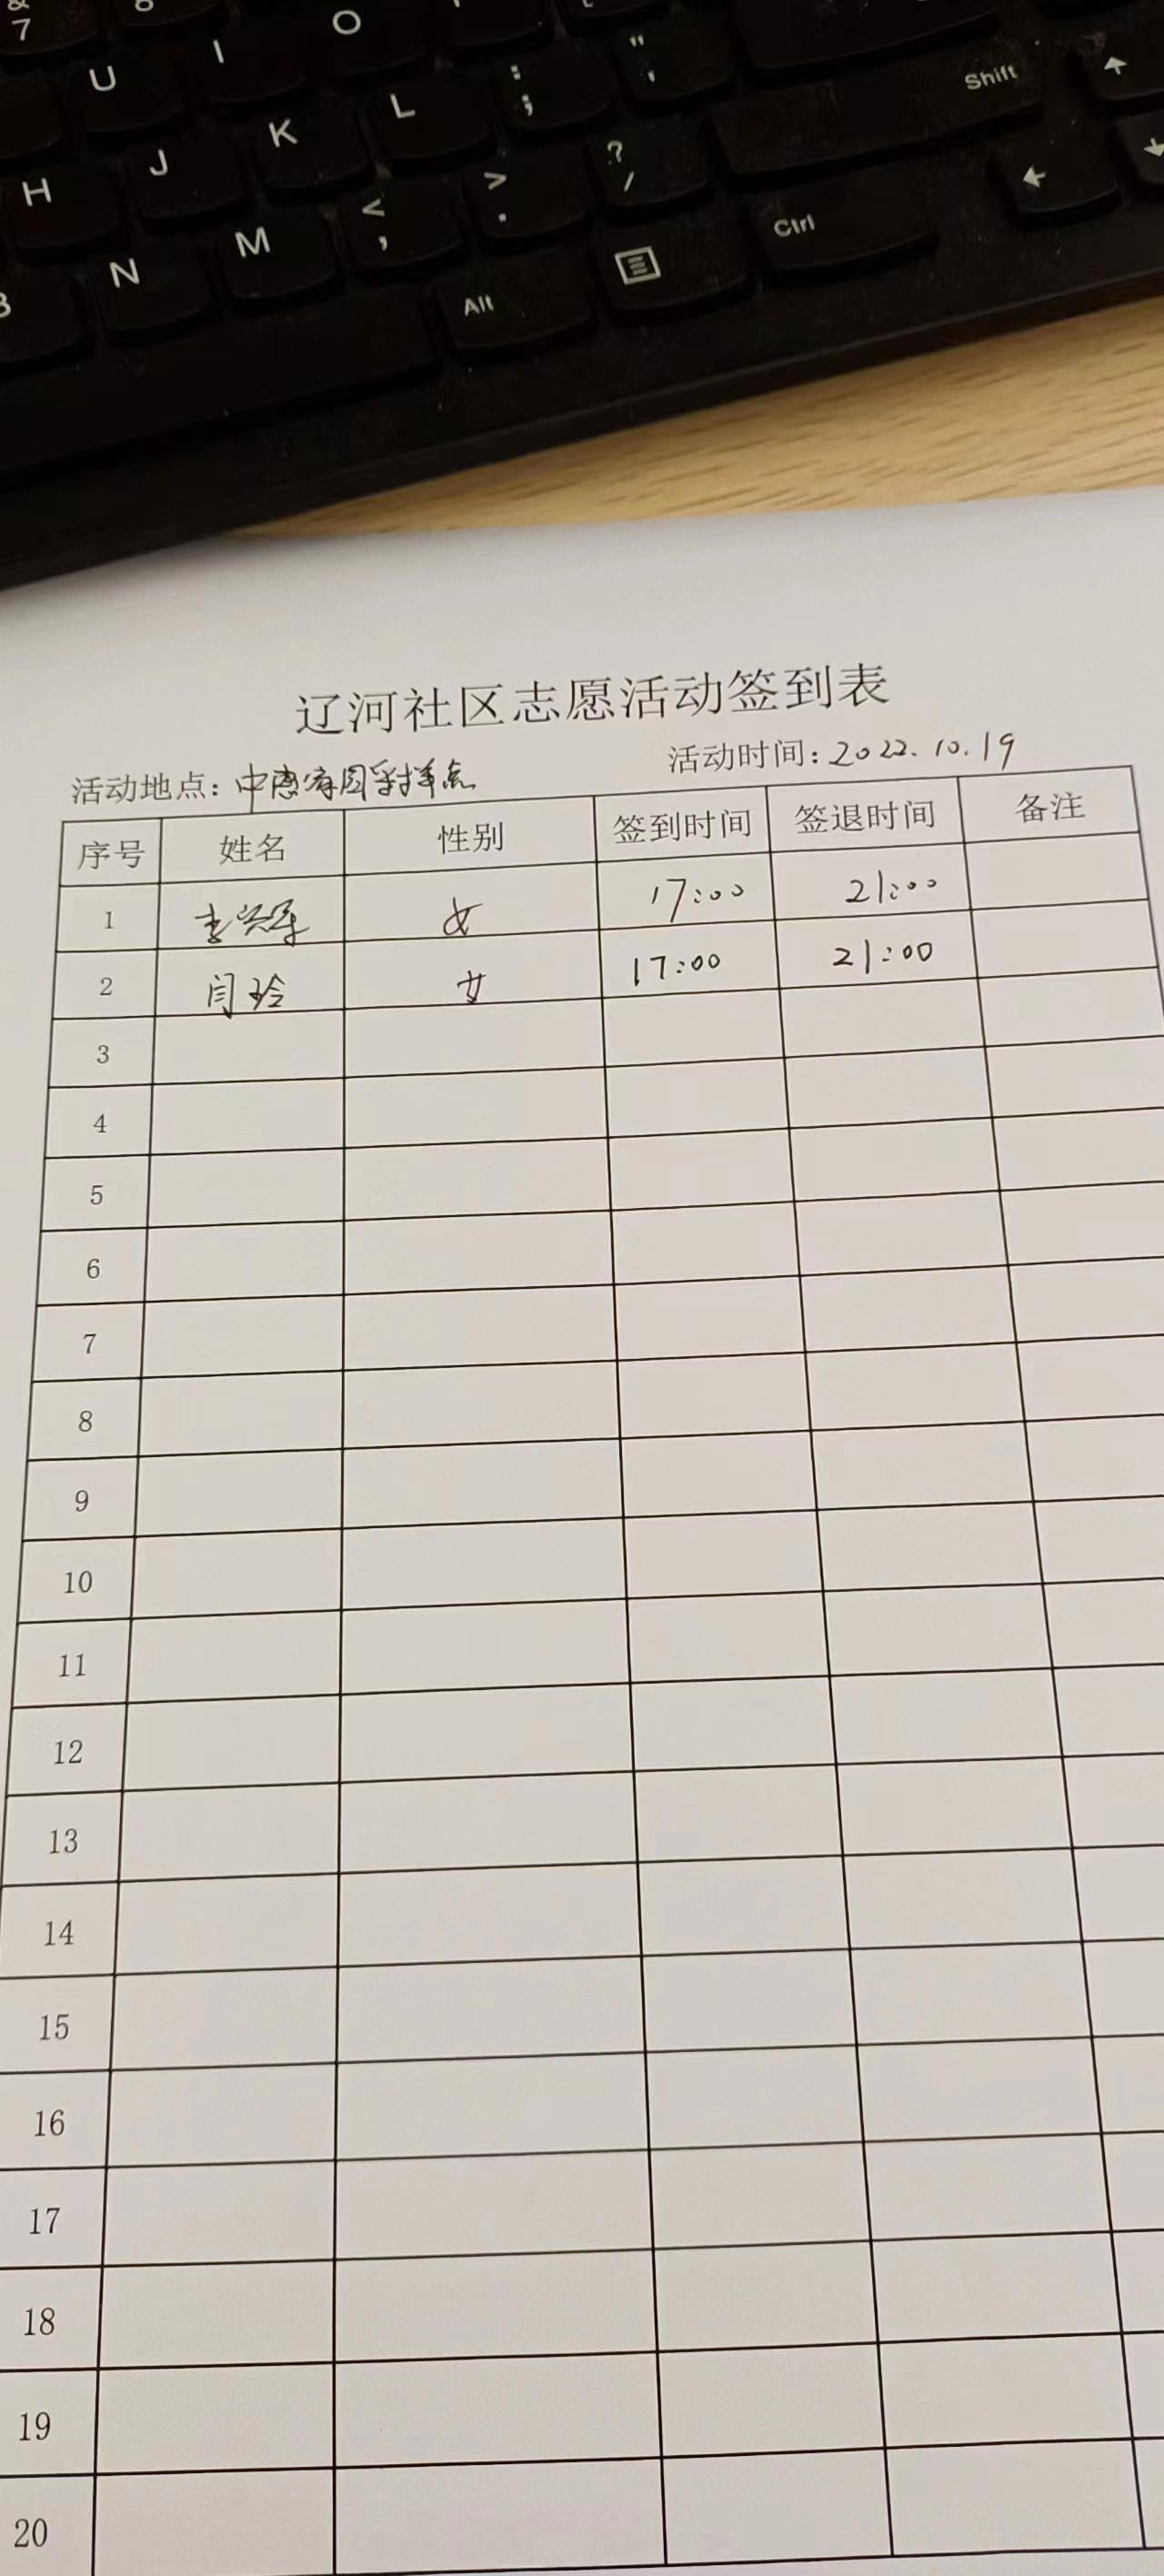 & 7
U I O
H J K L : ; " ' Shift
B N M < , > . ? / Ctrl
Alt
辽河社区志愿活动签到表
活动地点: 采样点 活动时间: 2022.10.19
序号 姓名 性别 签到时间 签退时间 备注
1 李 女 17:00 21:00
2 闫玲 女 17:00 21:00
3
4
5
6
7
8
9
10
11
12
13
14
15
16
17
18
19
20